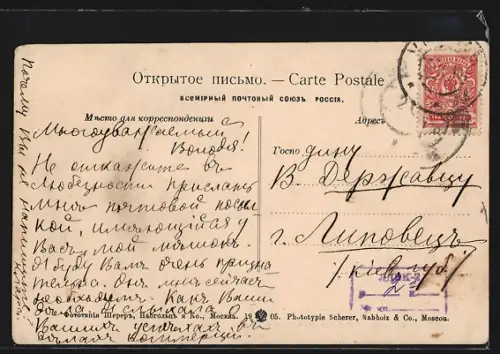 Открытое письмо. — Carte Postale
ВСЕМІРНЫЙ ПОЧТОВЫЙ СОЮЗЪ. РОССІЯ.
Мѣсто для корреспонденціи
Адресъ
Многоуважаемый
Володя!
Не откажите въ
любезности прислать
мнѣ почтовой посыл
кой, имѣющійся у
Васъ мой мѣшокъ.
Я буду Вамъ очень призна
тельна. Онъ мнѣ сейчасъ
необходимъ. Какъ Ваши
дѣла
Вашихъ успѣхахъ въ
Почему Вы не
Госпо дину
В. Державцу
г. Липовецъ
/Кіев. губ/
Фототипія Шереръ, Набгольцъ и Ко., Москва. 19 05. Phototypie Scherer, Nabholz & Co., Moscou.